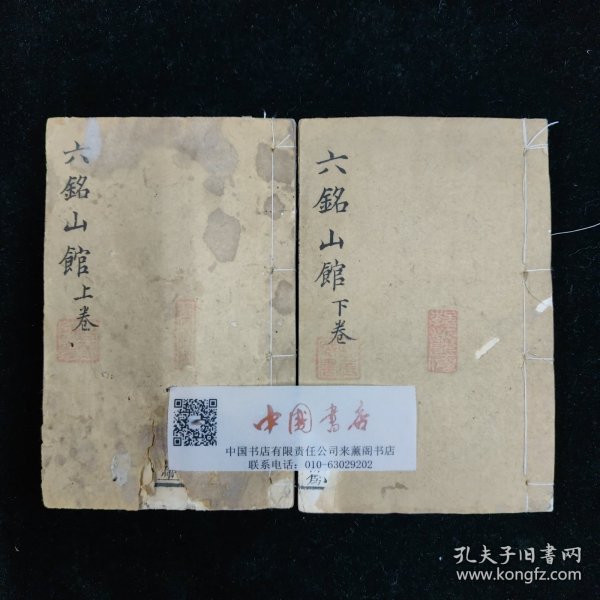 六銘山館上卷
六銘山館下卷
中国书店
中国书店有限责任公司来薰阁书店
联系电话：010-63029202
孔夫子旧书网
www.kongfz.com